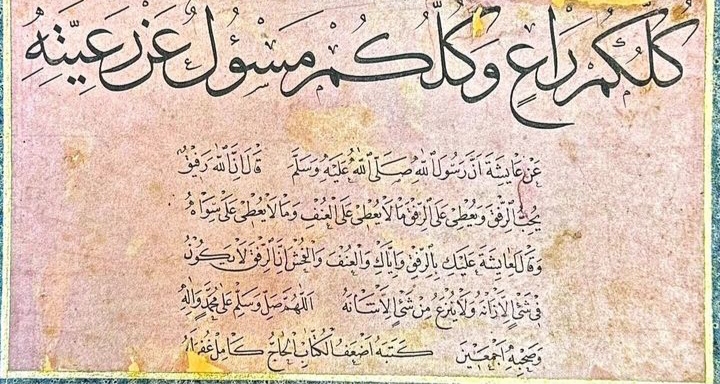 كُلُّكُمْ رَاعٍ وَكُلُّكُمْ مَسْؤُلٌ عَنْ رَعِيَّتِهِ
عَنْ عَايِشَةَ اَنَّ رَسُولَ اللّٰهِ صَلَّى اللّٰهُ عَلَيْهِ وَسَلَّمَ قَالَ اِنَّ اللّٰهَ رَفِيقٌ
يُحِبُّ الرِّفْقَ وَيُعْطِى عَلَى الرِّفْقِ مَا لَا يُعْطِى عَلَى الْعُنْفِ وَمَا لَا يُعْطِى عَلَى سِوَاهُ
وَقَالَ لِعَايِشَةَ عَلَيْكِ بِالرِّفْقِ وَاِيَّاكِ وَالْعُنْفَ وَالْفُحْشَ اِنَّ الرِّفْقَ لَا يَكُونُ
فِى شَىْءٍ اِلَّا زَانَهُ وَلَا يُنْزَعُ مِنْ شَىْءٍ اِلَّا شَانَهُ اَللّٰهُمَّ صَلِّ وَسَلِّمْ عَلَى مُحَمَّدٍ وَاٰلِهِ
وَصَحْبِهِ اَجْمَعِينَ كَتَبَهُ اَضْعَفُ الْكُتَّابِ الْحَاجُّ كَامِل غُفِرَ لَهُ